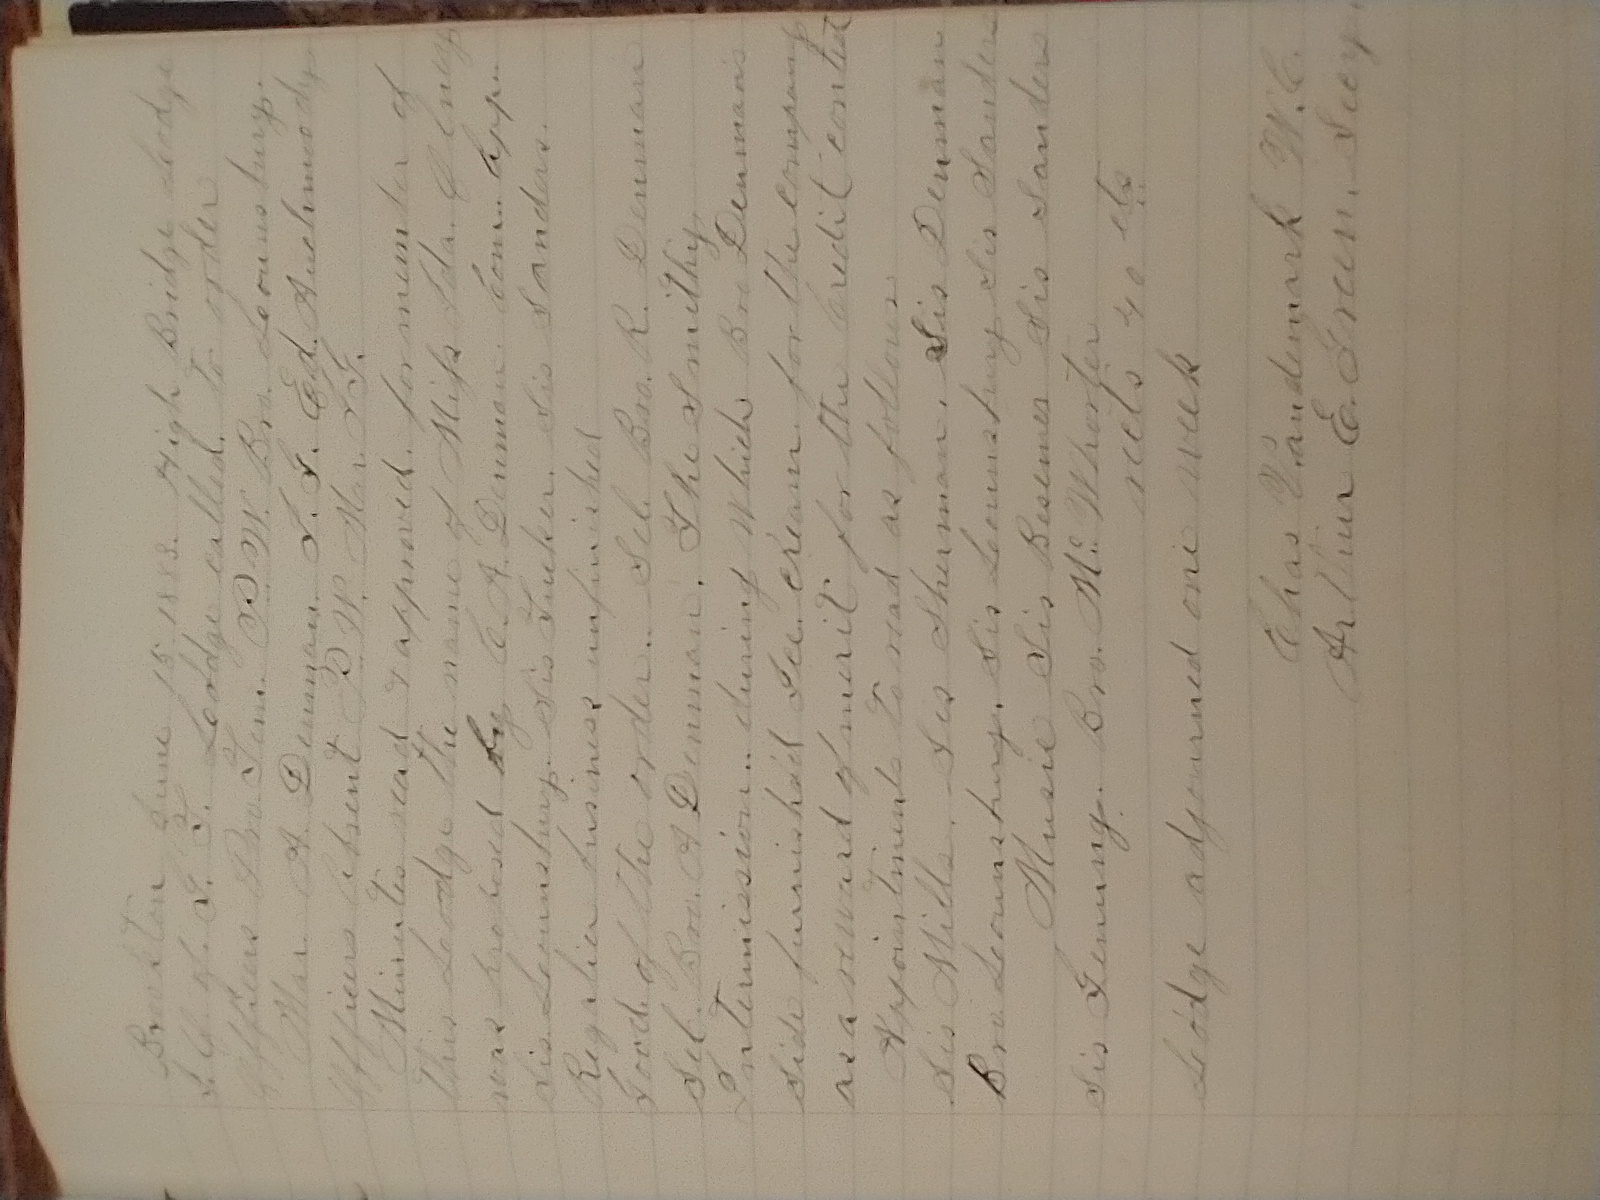 Brookton June 15. 1883. High Bridge Lodge
I. O. of. G. T. Lodge called. to order
Officers Pro. Tem. P. W. Bro. Lounsbury.
Mar. A. Denman. I. G. Ed. Auchmoody
Officers Absent P. W. Mar. I G.
Minutes read & approved. for member of
this Lodge the name of Miss Ida.
was proposed by C. A. Denman. Com.. App..
Sis. Lounsbury. Sis Tucker. Sis Sanders.
Regalia business unfinished
Good. of the order.. Sel. Bro. R. Denman
Sel. Bro. A Denman. The Smithy
Intermission.. during which Bro Denman's
Side furnish'd Ice. cream. for the company
as a reward of merit for the Credit contest
Appointments to read as follows
Sis Mills. Sis Sherman. Sis Denman
Bro Lounsbury. Sis Lounsbury Sis Sanders
Music Sis Besemer Sis Sanders
Sis Genung. Bro. Mc. Whorter
rects 40 cts
Lodge adjourned one week
Chas Vandemark W. C.
Arthur E. Green. Secy.